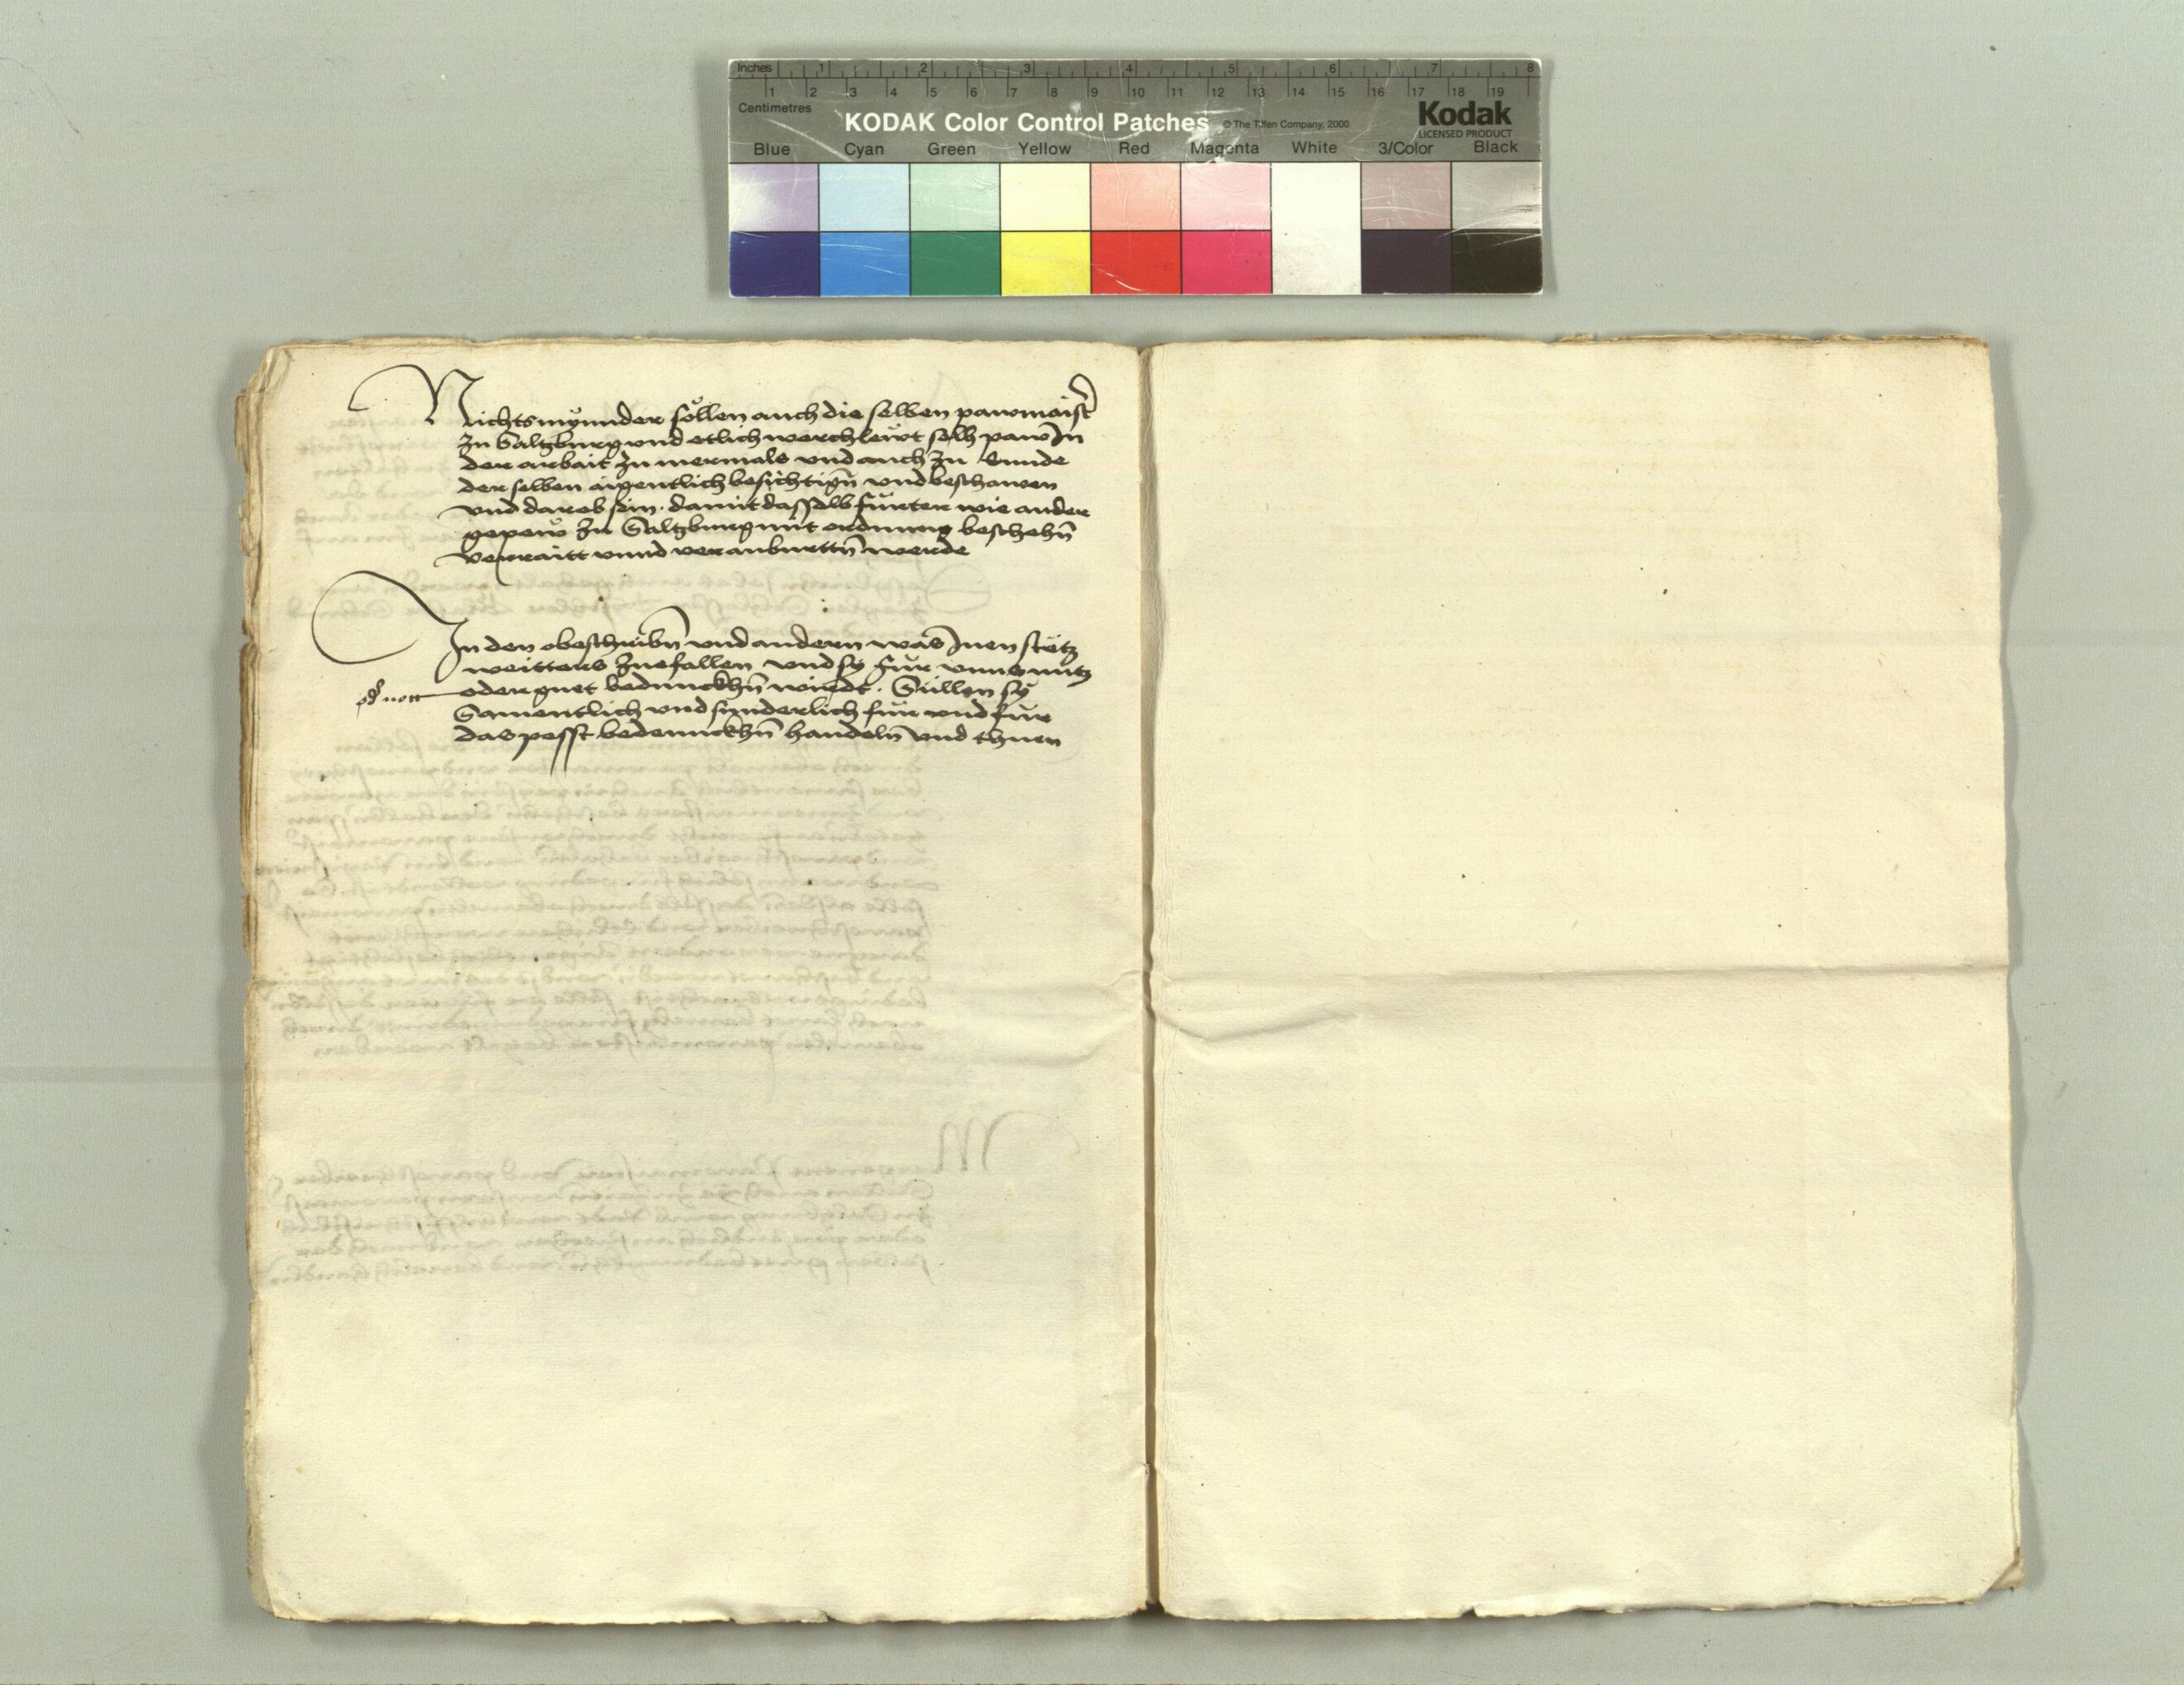 Inches 1 2 3 4 5 6 7 8
1 2 3 4 5 6 7 8 9 10 11 12 13 14 15 16 17 18 19
Centimetres
KODAK Color Control Patches © The Tiffen Company, 2000
Kodak
LICENSED PRODUCT
Blue Cyan Green Yellow Red Magenta White 3/Color Black
Nichtsmynnder sollen auch die selben pawmaistr
zu Saltzburg vnd etlich werchlewt solh paw In
der arbait zu mermals vnd auch zu Ennde
der selben aigentlich besichtign vnd beschawen
vnd darob sein. damit dasselb furter wie ander
gepew zu Saltzburg mit ordnung beschehn
verraitt vnnd verantwurttn werde
In den obeschribn vnd andern was Inen stetz
weitters zuefallen vnd sy fur vnns nutz
od nott
oder guet bedunckhn wirdt. Süllen sy
Samentlich vnd sunderlich fur vnd fur
das posst bedennckhn handeln vnd thuen